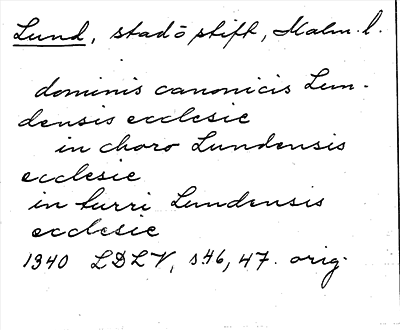 Lund, stad ō stift, Malm. l.
dominis canonicis Lun-
densis ecclesie
in choro Lundensis
ecclesie
in turri Lundensis
ecclesie
1340 LDLV, s. 46, 47. orig.